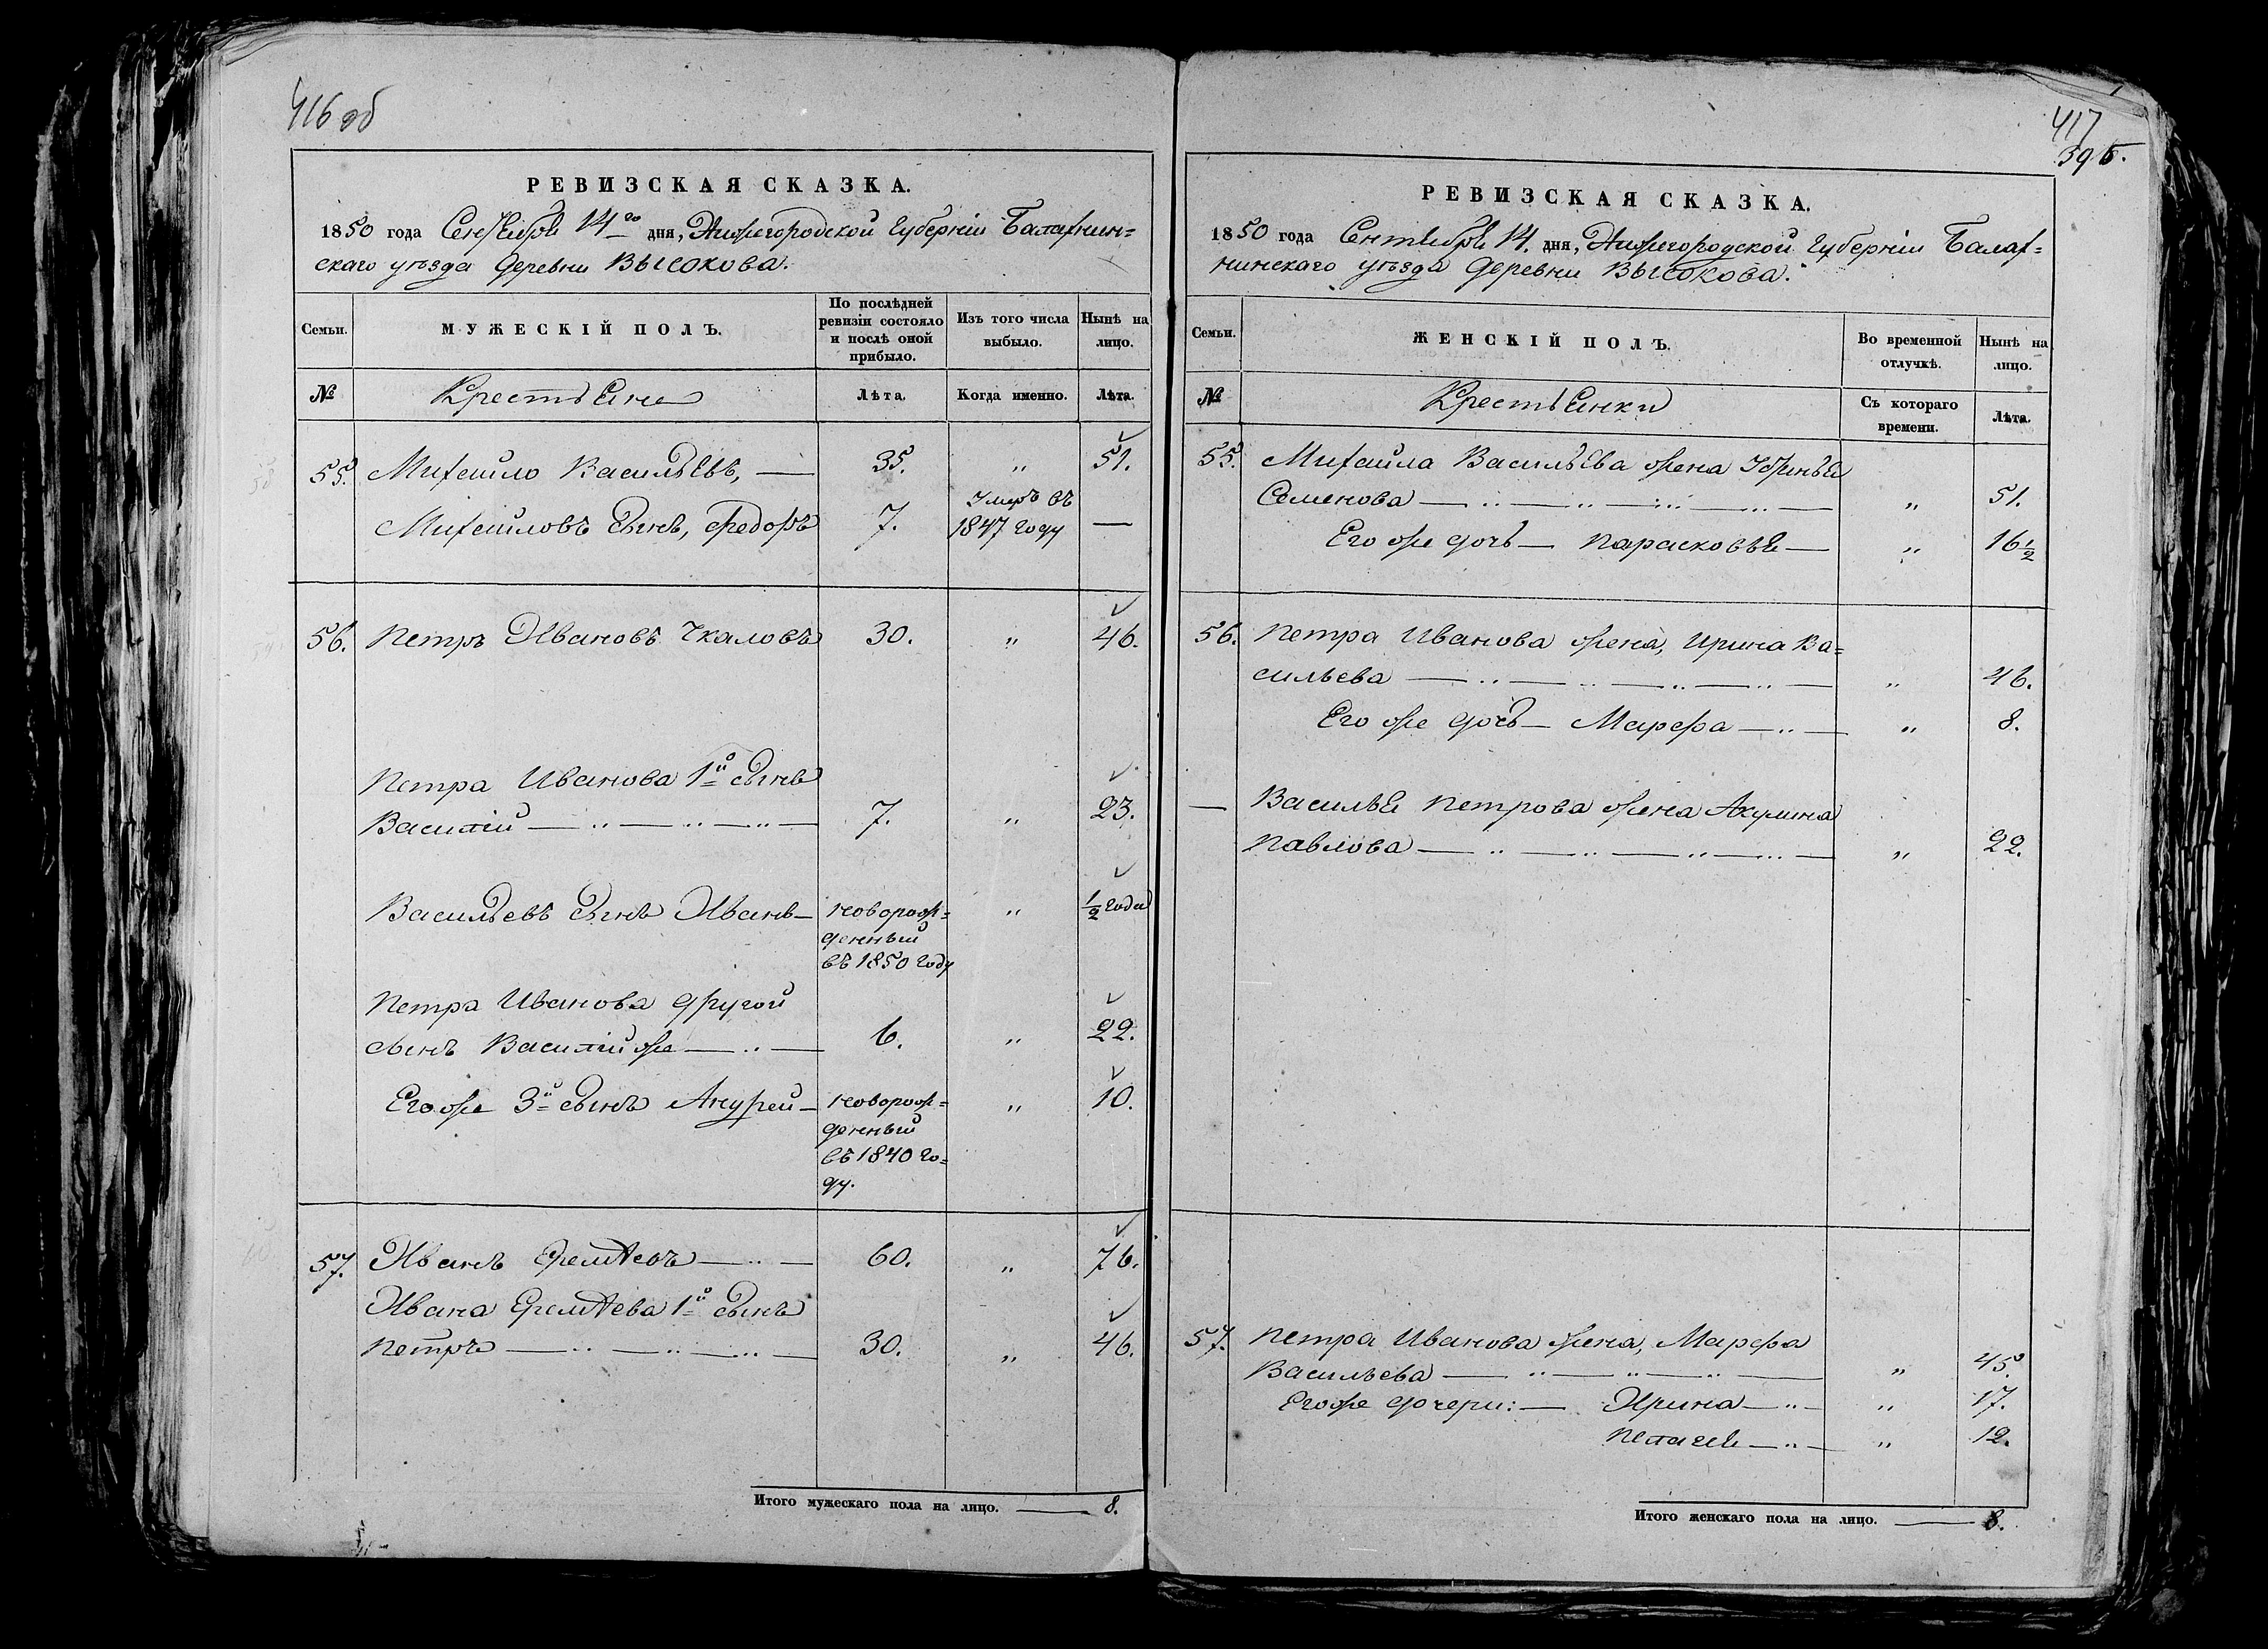 416 об
РЕВИЗСКАЯ СКАЗКА.
1850 года Сентября 14го дня, Нижегородской Губернiи Балахнин=
скаго уѣзда деревни Высокова.
Семьи. МУЖЕСКIЙ ПОЛЪ. По послѣдней ревизiи состояло и послѣ оной прибыло. Изъ того числа выбыло. Нынѣ на лицо.
№ Крестьяне Лѣта. Когда именно. Лѣта.
55. Михайло Васильевъ, — 35. „ 51.
Михайловъ сынъ, Федоръ 7. Умеръ въ 1847 году —
56. Петръ Ивановъ Чкаловъ 30. „ 46.
Петра Иванова 1й сынъ
Василiй — 7. „ 23.
Васильевъ сынъ Иванъ — новорож=
денный
въ 1850 году „ ½ года
Петра Иванова другой
сынъ Василiй же — 6. „ 22.
Его же 3й сынъ Андрей — новорож=
денный
въ 1840 го=
ду. „ 10.
57. Иванъ Еремѣевъ — 60. „ 76.
Ивана Еремѣева 1й сынъ
Петръ — 30. „ 46.
Итого мужескаго пола на лицо. — 8.
417
395.
РЕВИЗСКАЯ СКАЗКА.
1850 года Сентября 14. дня, Нижегородской Губернiи Балах=
нинскаго уѣзда деревни Высокова.
Семьи. ЖЕНСКIЙ ПОЛЪ. Во временной отлучкѣ. Нынѣ на лицо.
№ Крестьянки Съ котораго времени. Лѣта.
55. Михайла Васильева жена
Семенова — „ 51.
Его же дочь — Парасковья — „ 16 ½
56. Петра Иванова жена, Ирина Ва=
сильева — „ 46.
Его же дочь — Марфа — „ 8.
— Василья Петрова жена Акулина
Павлова — „ 22.
57. Петра Иванова жена, Марфа
Васильева — „ 45.
Его же дочери: — Ирина — „ 17.
Пелагея — „ 12.
Итого женскаго пола на лицо. — 8.